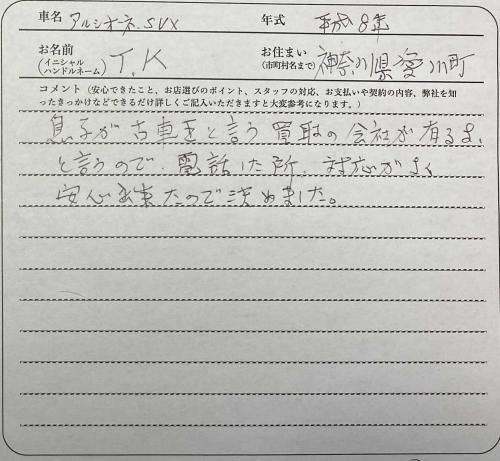 車名 アルシオーネ.SVX 年式 平成8年
お名前 (イニシャル ハンドルネーム) T.K お住まい (市町村名まで) 神奈川県愛川町
コメント（安心できたこと、お店選びのポイント、スタッフの対応、お支払いや契約の内容、弊社を知
ったきっかけなどできるだけ詳しくご記入いただきますと大変参考になります。）
息子が古車王と言う買取の会社が有るよ、
と言うので、電話した所、対応がよく
安心出来たので決めました。